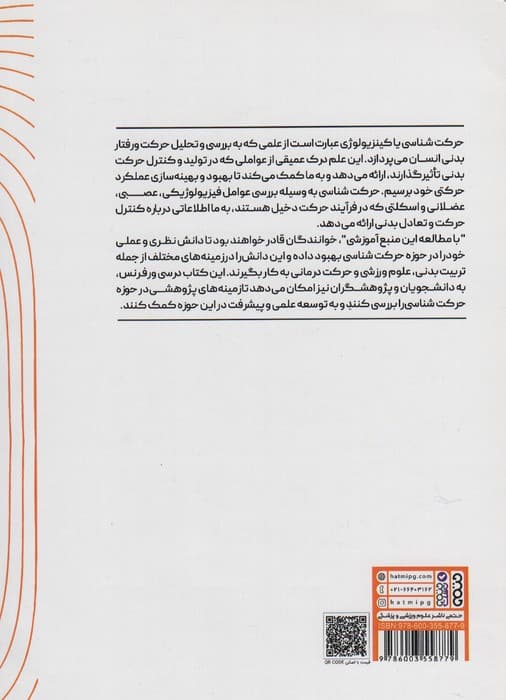 حرکت شناسی یا کینزیولوژی عبارت است از علمی که به بررسی و تحلیل حرکت و رفتار
بدنی انسان می‌پردازد. این علم درک عمیقی از عواملی که در تولید و کنترل حرکت
بدنی تأثیرگذارند، ارائه می‌دهد و به ما کمک می‌کند تا بهبود و بهینه‌سازی عملکرد
حرکتی خود برسیم. حرکت شناسی به وسیله بررسی عوامل فیزیولوژیکی، عصبی،
عضلانی و اسکلتی که در فرآیند حرکت دخیل هستند، به ما اطلاعاتی درباره کنترل
حرکت و تعادل بدنی ارائه می‌دهد.
"با مطالعه این منبع آموزشی"، خوانندگان قادر خواهند بود تا دانش نظری و عملی
خود را در حوزه حرکت شناسی بهبود داده و این دانش را در زمینه‌های مختلف از جمله
تربیت بدنی، علوم ورزشی و حرکت درمانی به کار بگیرند. این کتاب درسی و رفرنس،
به دانشجویان و پژوهشگران نیز امکان می‌دهد تا زمینه‌های پژوهشی در حوزه
حرکت شناسی را بررسی کنند و به توسعه علمی و پیشرفت در این حوزه کمک کنند.
hatmipg.com
۰۲۱-۶۶۴۰۳۱۶۲
hatmipg
حتمی ناشر علوم ورزشی و پزشکی
ISBN: 978-600-355-877-9
9 786003 558779
قیمت با اصلی QR CODE